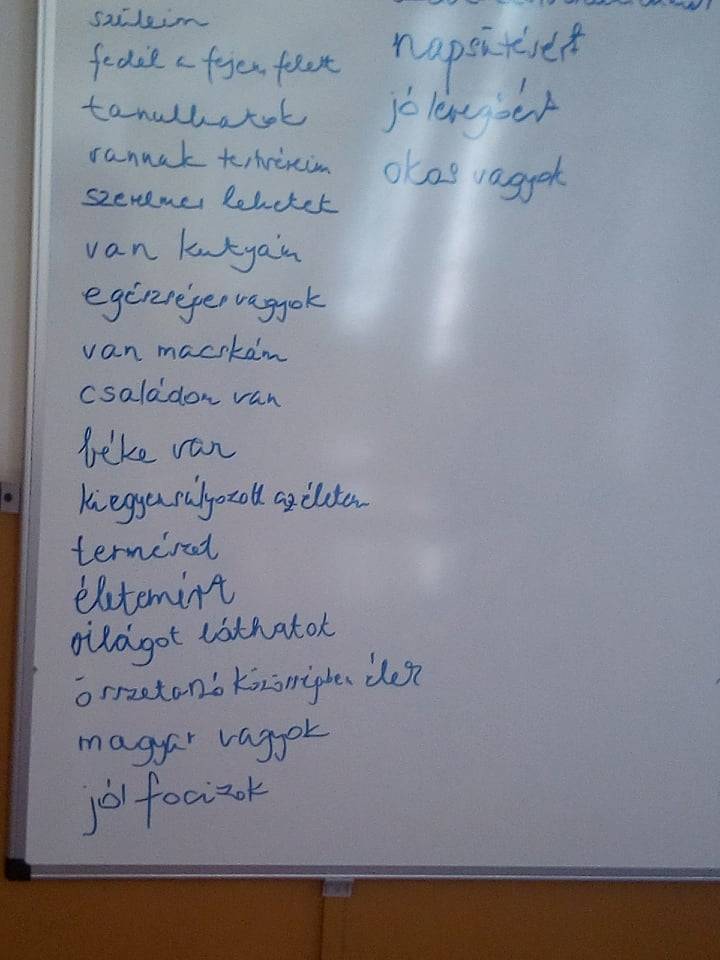 szüleim
fedél a fejem felett
tanulhatok
vannak testvéreim
szerelmes lehetek
van kutyám
egészséges vagyok
van macskám
családom van
béke van
kiegyensúlyozott az életem
természet
életemért
világot láthatok
összetartó közösségben élek
magyar vagyok
jól focizok
napsütésért
jó levegőért
okos vagyok